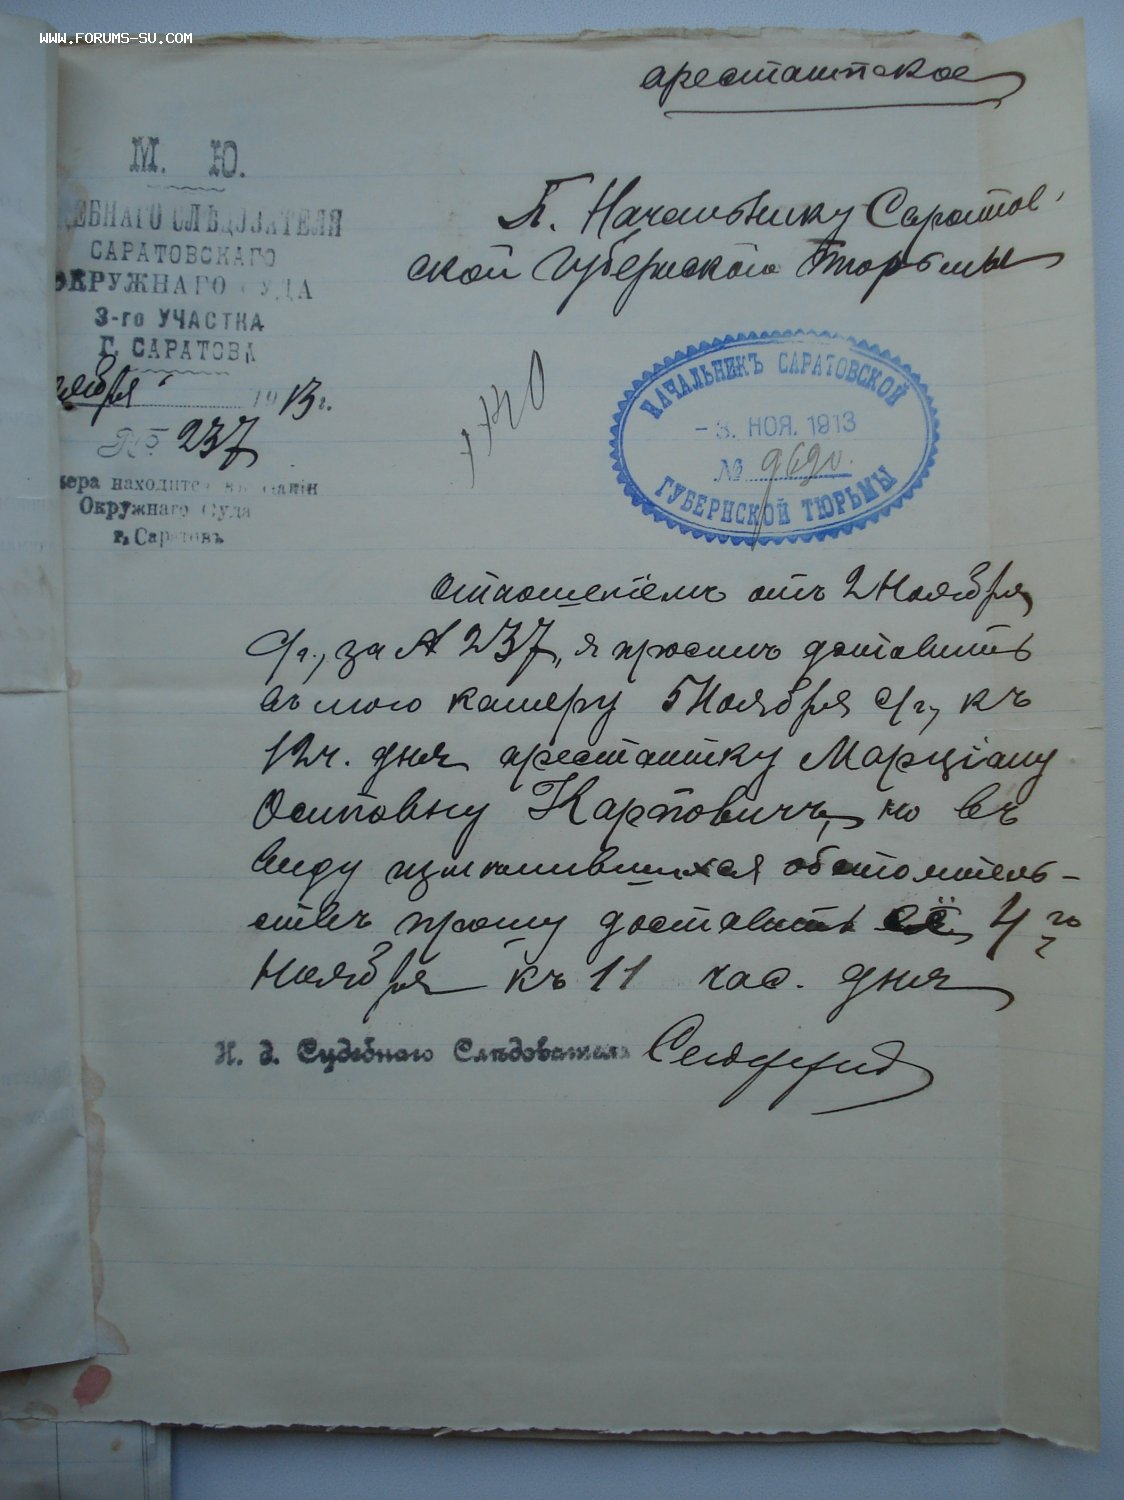 WWW.FORUMS-SU.COM
арестантское
М. Ю.
ДЕБНАГО СЛѢДОВАТЕЛЯ
САРАТОВСКАГО
ОКРУЖНАГО СУДА
3-го УЧАСТКА
Г. САРАТОВА
ноября 1913 г.
№ 237
мера находится въ зданіи
Окружнаго Суда
г. Саратовъ
Г. Начальнику Саратов-
ской Губернской Тюрьмы
НАЧАЛЬНИКЪ САРАТОВСКОЙ
- 3. НОЯ. 1913
№ 9690.
ГУБЕРНСКОЙ ТЮРЬМЫ
Отношеніемъ отъ 2 Ноября
с/г., за № 237, я просилъ доставить
въ мою камеру 5 Ноября с/г, къ
12 ч. дня арестантку Марціану
Осиповну Карповичъ, но въ
виду измѣнившихся обстоятель-
ствъ прошу доставить её 4го
Ноября къ 11 час. дня
И. д. Судебнаго Слѣдователя